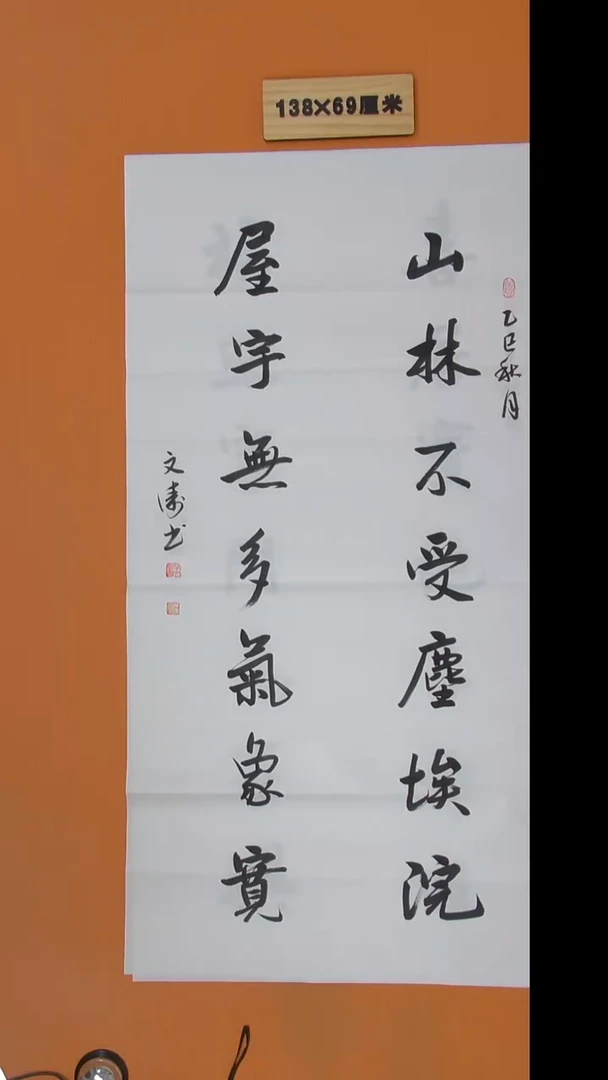 138×69厘米
乙巳秋月
山林不受塵埃浣
屋宇無多氣象寬
文涛书